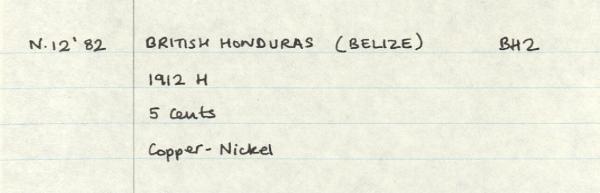 N.12'82 BRITISH HONDURAS (BELIZE) BH2
1912 H
5 Cents
Copper-Nickel